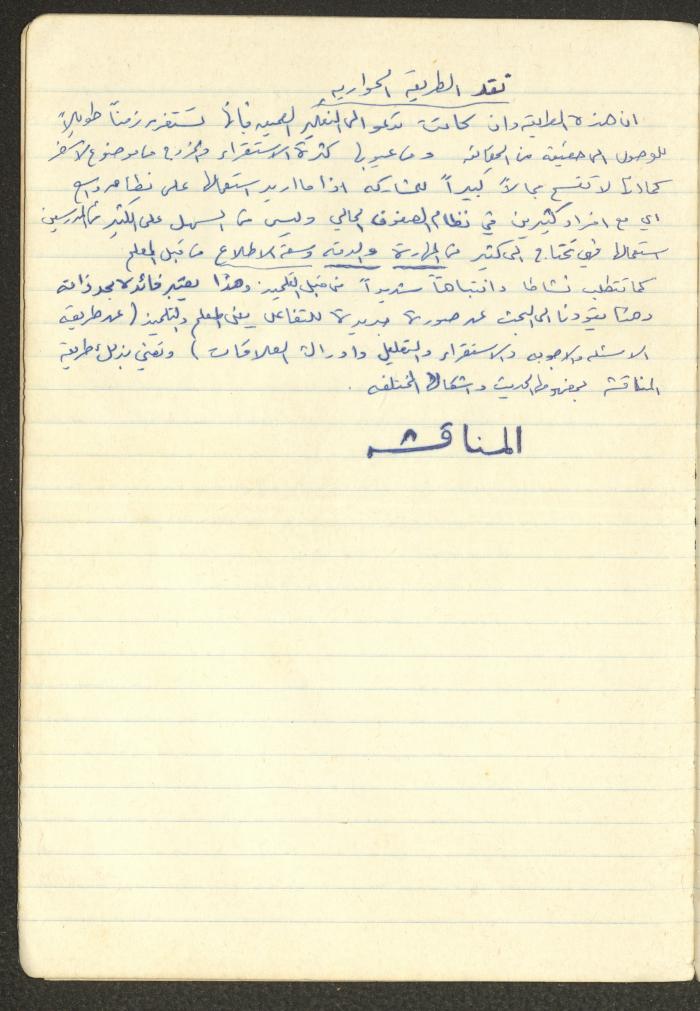 نقد الطريقة الحواريه
ان هذه الطريقة وان كانت تدعو الى التفكير العميق فإنها تستغرق زمناً طويلاً
للوصول الى حقيقة من الحقائق ومن عيوبها كثرة الاستقراء والخروج من موضوع لآخر
كما انها لا تفسح مجالاً كبيراً للمشاركه اذا ما اريد استعمالها على نطاق واسع
اي مع افراد كثيرين في نظام الصفوف الحالي وليس من السهل على الكثير من المدرسين
استعمالها فهي تحتاج الى كثير من المهارة والدقه وسعة الاطلاع من قبل المعلم
كما تتطلب نشاطا وانتباهاً شديداً من قبل التلميذ وهذا يعتبر فائدة بحد ذاته
وهذا يقودنا الى البحث عن صورة جديدة للتفاعل بين المعلم والتلميذ (عن طريق
الاسئله والاجوبه والاستقراء والتعليل وادراك العلاقات) ونعني بذلك طريقة
المناقشة بمفهومها الحديث واشكالها المختلفه .
المناقشه